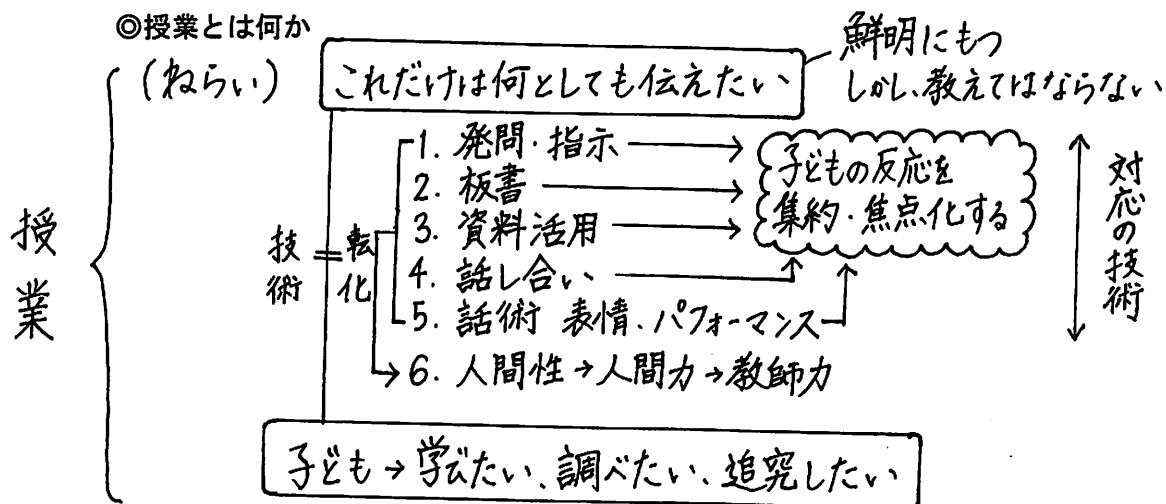 ◎授業とは何か
(ねらい)
これだけは何としても伝えたい
鮮明にもつ
しかし、教えてはならない
授業
技術
転化
1. 発問・指示
2. 板書
3. 資料活用
4. 話し合い
5. 話術 表情、パフォーマンス
6. 人間性→人間力→教師力
子どもの反応を
集約・焦点化する
対応の技術
子ども→学びたい、調べたい、追究したい